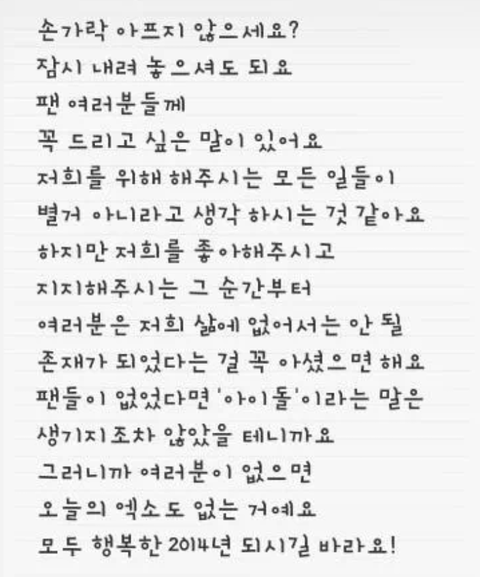 손가락 아프지 않으세요?
잠시 내려 놓으셔도 되요
팬 여러분들께
꼭 드리고 싶은 말이 있어요
저희를 위해 해주시는 모든 일들이
별거 아니라고 생각 하시는 것 같아요
하지만 저희를 좋아해주시고
지지해주시는 그 순간부터
여러분은 저희 삶에 없어서는 안 될
존재가 되었다는 걸 꼭 아셨으면 해요
팬들이 없었다면 '아이돌'이라는 말은
생기지조차 않았을 테니까요
그러니까 여러분이 없으면
오늘의 엑소도 없는 거예요
모두 행복한 2014년 되시길 바라요!